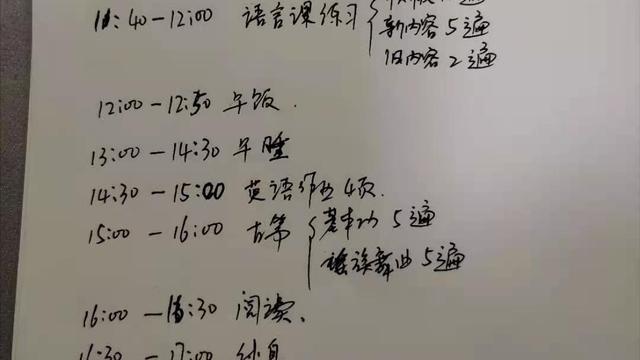 11:40-12:00 语言课练习
新内容 5遍
旧内容 2遍
12:00-12:50 午饭.
13:00-14:30 午睡
14:30-15:00 英语作业4页.
15:00-16:00 古筝 基本功 5遍
瑶族舞曲 5遍
16:00-16:30 阅读、
16:30-17:00